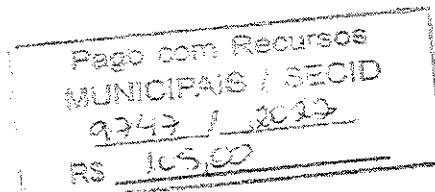 Pago com Recursos
MUNICIPAIS / SECID
9747 / 2022
R$ 105,00